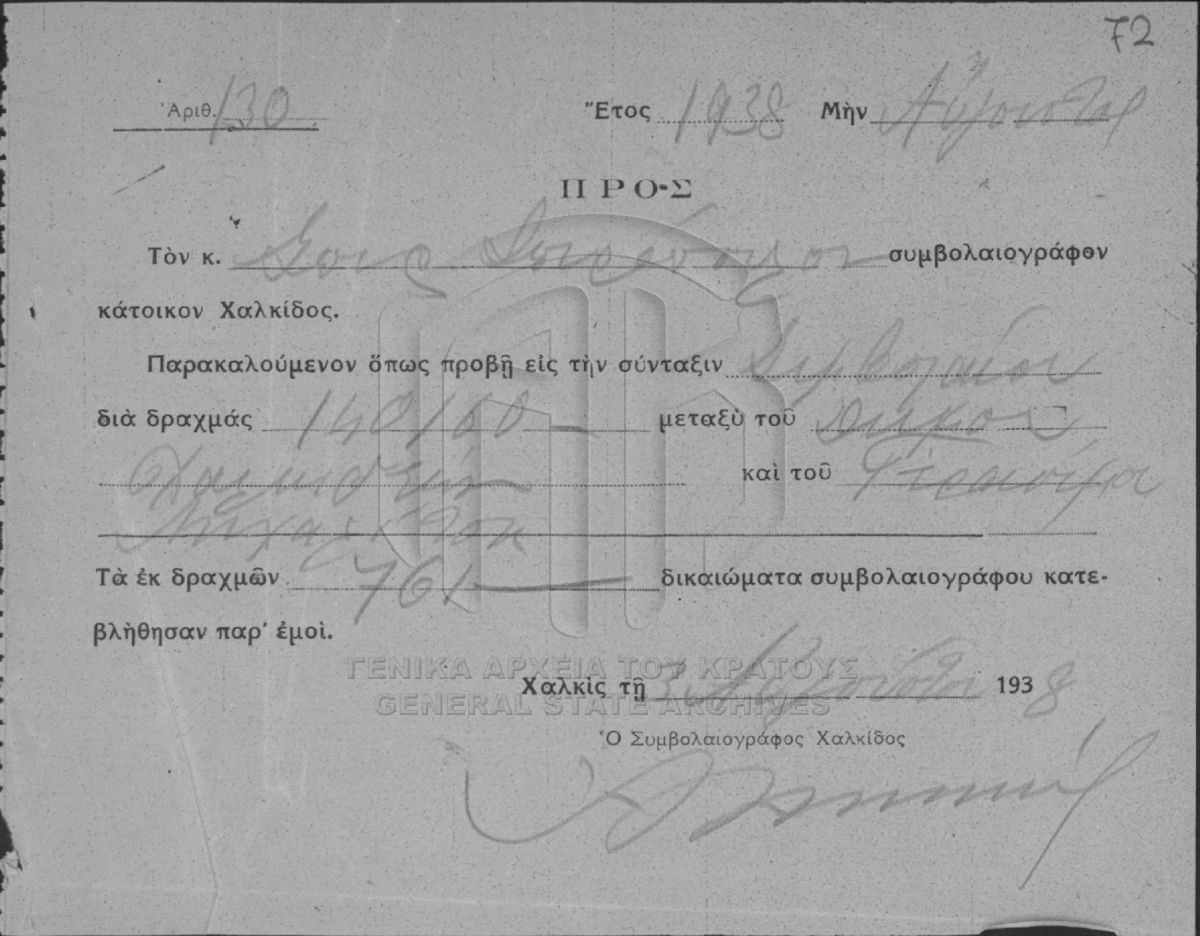 72
Ἀριθ. 130 Ἔτος 1938 Μὴν Αὔγουστος
ΠΡΟΣ
Τὸν κ. συμβολαιογράφον
κάτοικον Χαλκίδος.
Παρακαλούμενον ὅπως προβῇ εἰς τὴν σύνταξιν συμβολαίου
διὰ δραχμάς 140160 μεταξὺ τοῦ Δήμου
Χαλκιδέων καὶ τοῦ Γερασίμου
Τὰ ἐκ δραχμῶν 761 δικαιώματα συμβολαιογράφου κατε-
βλήθησαν παρ' ἐμοὶ.
ΓΕΝΙΚΑ ΑΡΧΕΙΑ ΤΟΥ ΚΡΑΤΟΥΣ
Χαλκὶς τῇ 3 Αὐγούστου 1938
GENERAL STATE ARCHIVES
Ὁ Συμβολαιογράφος Χαλκίδος